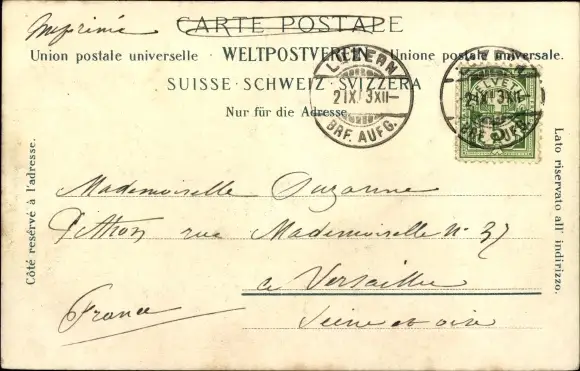 Imprimé
CARTE POSTALE
Union postale universelle · WELTPOSTVEREIN · Unione postale universale.
SUISSE · SCHWEIZ · SVIZZERA
Nur für die Adresse.
LUZERN
21 IX 3 XII–
BRF. AUFG.
LUZERN
21 IX 3 XII
BRF. AUFG.
HELVETIA
5
Côté reservé à l'adresse.
Lato riservato all' indirizzo.
Mademoiselle Suzanne
rue Mademoiselle No 37
a Versailles
France
Seine et oise